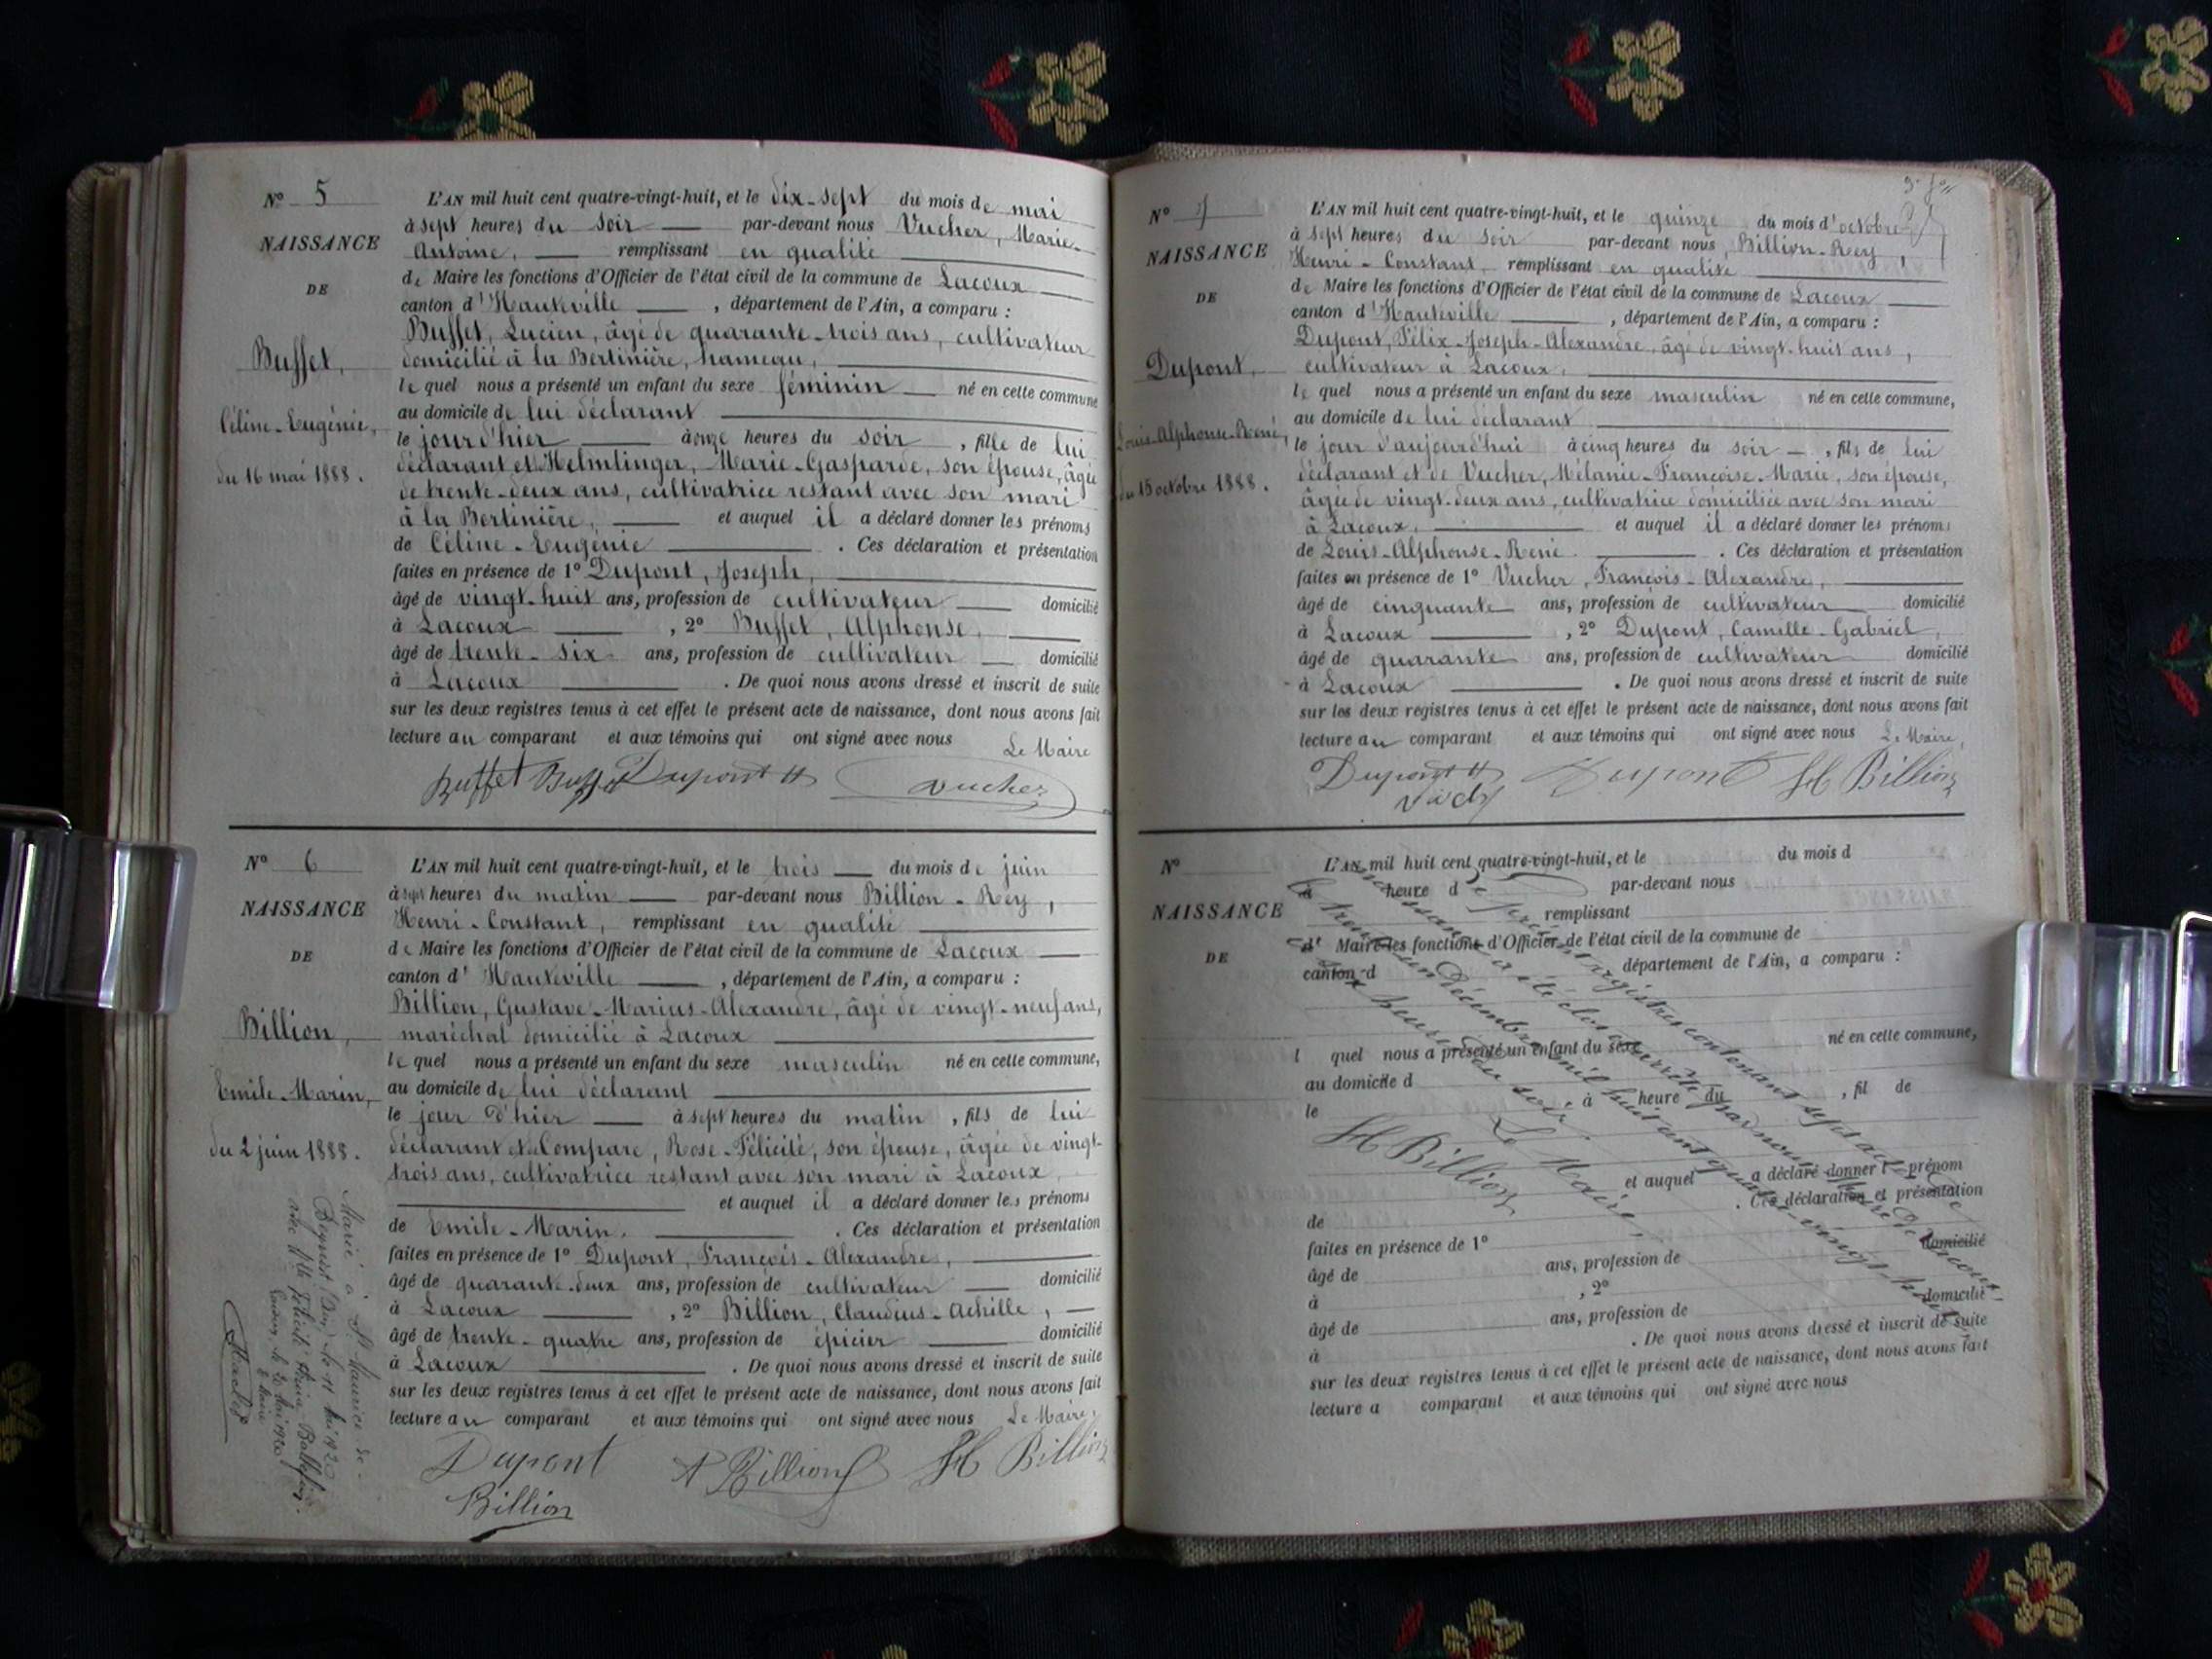 N° 5
NAISSANCE
DE
Buffet,
Céline-Eugénie,
du 16 mai 1888.
L'AN mil huit cent quatre-vingt-huit, et le dix-sept du mois de mai
à sept heures du soir par-devant nous Vucher, Marie-
Antoine, remplissant en qualité
de Maire les fonctions d'Officier de l'état civil de la commune de Lacoux
canton d'Hauteville, département de l'Ain, a comparu :
Buffet, Lucien, âgé de quarante-trois ans, cultivateur
domicilié à la Bertinière, hameau,
le quel nous a présenté un enfant du sexe féminin né en cette commune
au domicile de lui déclarant
le jour d'hier à onze heures du soir, fille de lui
déclarant et Helmlinger, Marie-Gasparde, son épouse, âgée
de trente-deux ans, cultivatrice restant avec son mari
à la Bertinière, et auquel il a déclaré donner les prénoms
de Céline-Eugénie. Ces déclaration et présentation
faites en présence de 1° Dupont, Joseph,
âgé de vingt-huit ans, profession de cultivateur domicilié
à Lacoux, 2° Buffet, Alphonse,
âgé de trente-six ans, profession de cultivateur domicilié
à Lacoux. De quoi nous avons dressé et inscrit de suite
sur les deux registres tenus à cet effet le présent acte de naissance, dont nous avons fait
lecture au comparant et aux témoins qui ont signé avec nous Le Maire
Buffet Buffet Dupont Vucher
N° 6
NAISSANCE
DE
Billion,
Emile-Marin,
du 2 juin 1888.
Marié à St Maurice de-
Beynost (Ain) le 11 mai 1920
avec Mlle Félicité
Lacoux, le 20 mai 1920
Le Maire
L'AN mil huit cent quatre-vingt-huit, et le trois du mois de juin
à sept heures du matin par-devant nous Billion-Rey,
Henri-Constant, remplissant en qualité
de Maire les fonctions d'Officier de l'état civil de la commune de Lacoux
canton d'Hauteville, département de l'Ain, a comparu :
Billion, Gustave-Marius-Alexandre, âgé de vingt-neuf ans,
maréchal domicilié à Lacoux
le quel nous a présenté un enfant du sexe masculin né en cette commune,
au domicile de lui déclarant
le jour d'hier à sept heures du matin, fils de lui
déclarant et de Compare, Rose-Félicité, son épouse, âgée de vingt-
trois ans, cultivatrice restant avec son mari à Lacoux,
et auquel il a déclaré donner les prénoms
de Emile-Marin. Ces déclaration et présentation
faites en présence de 1° Dupont, François-Alexandre,
âgé de quarante-deux ans, profession de cultivateur domicilié
à Lacoux, 2° Billion, Claudius-Achille,
âgé de trente-quatre ans, profession de épicier domicilié
à Lacoux. De quoi nous avons dressé et inscrit de suite
sur les deux registres tenus à cet effet le présent acte de naissance, dont nous avons fait
lecture au comparant et aux témoins qui ont signé avec nous Le Maire,
Dupont A Billion H Billion
Billion
N° 7
NAISSANCE
DE
Dupont,
Louis-Alphonse-René,
du 15 octobre 1888.
L'AN mil huit cent quatre-vingt-huit, et le quinze du mois d'octobre
à sept heures du soir par-devant nous, Billion-Rey,
Henri-Constant, remplissant en qualité
de Maire les fonctions d'Officier de l'état civil de la commune de Lacoux
canton d'Hauteville, département de l'Ain, a comparu :
Dupont, Félix-Joseph-Alexandre, âgé de vingt-huit ans,
cultivateur à Lacoux,
le quel nous a présenté un enfant du sexe masculin né en cette commune,
au domicile de lui déclarant
le jour d'aujourd'hui à cinq heures du soir, fils de lui
déclarant et de Vucher, Mélanie-Françoise-Marie, son épouse,
âgée de vingt-deux ans, cultivatrice domiciliée avec son mari
à Lacoux, et auquel il a déclaré donner les prénoms
de Louis-Alphonse-René. Ces déclaration et présentation
faites en présence de 1° Vucher, François-Alexandre,
âgé de cinquante ans, profession de cultivateur domicilié
à Lacoux, 2° Dupont, Camille-Gabriel,
âgé de quarante ans, profession de cultivateur domicilié
à Lacoux. De quoi nous avons dressé et inscrit de suite
sur les deux registres tenus à cet effet le présent acte de naissance, dont nous avons fait
lecture au comparant et aux témoins qui ont signé avec nous Le Maire,
Dupont Dupont H Billion
N°
NAISSANCE
DE
L'AN mil huit cent quatre-vingt-huit, et le du mois d
à heure d par-devant nous
remplissant
d Maire les fonctions d'Officier de l'état civil de la commune de
canton d département de l'Ain, a comparu :
l quel nous a présenté un enfant du sexe né en cette commune,
au domicile d
le à heure du, fil de
et auquel a déclaré donner l prénom
de. Ces déclaration et présentation
faites en présence de 1°
âgé de ans, profession de domicilié
à, 2°
âgé de ans, profession de domicilié
à. De quoi nous avons dressé et inscrit de suite
sur les deux registres tenus à cet effet le présent acte de naissance, dont nous avons fait
lecture a comparant et aux témoins qui ont signé avec nous
Le présent registre contenant sept actes de
naissance a été clos et arrêté par nous Maire de Lacoux,
le trente-un Décembre mil huit cent quatre-vingt-huit
à six heures du soir.
Le Maire,
H Billion